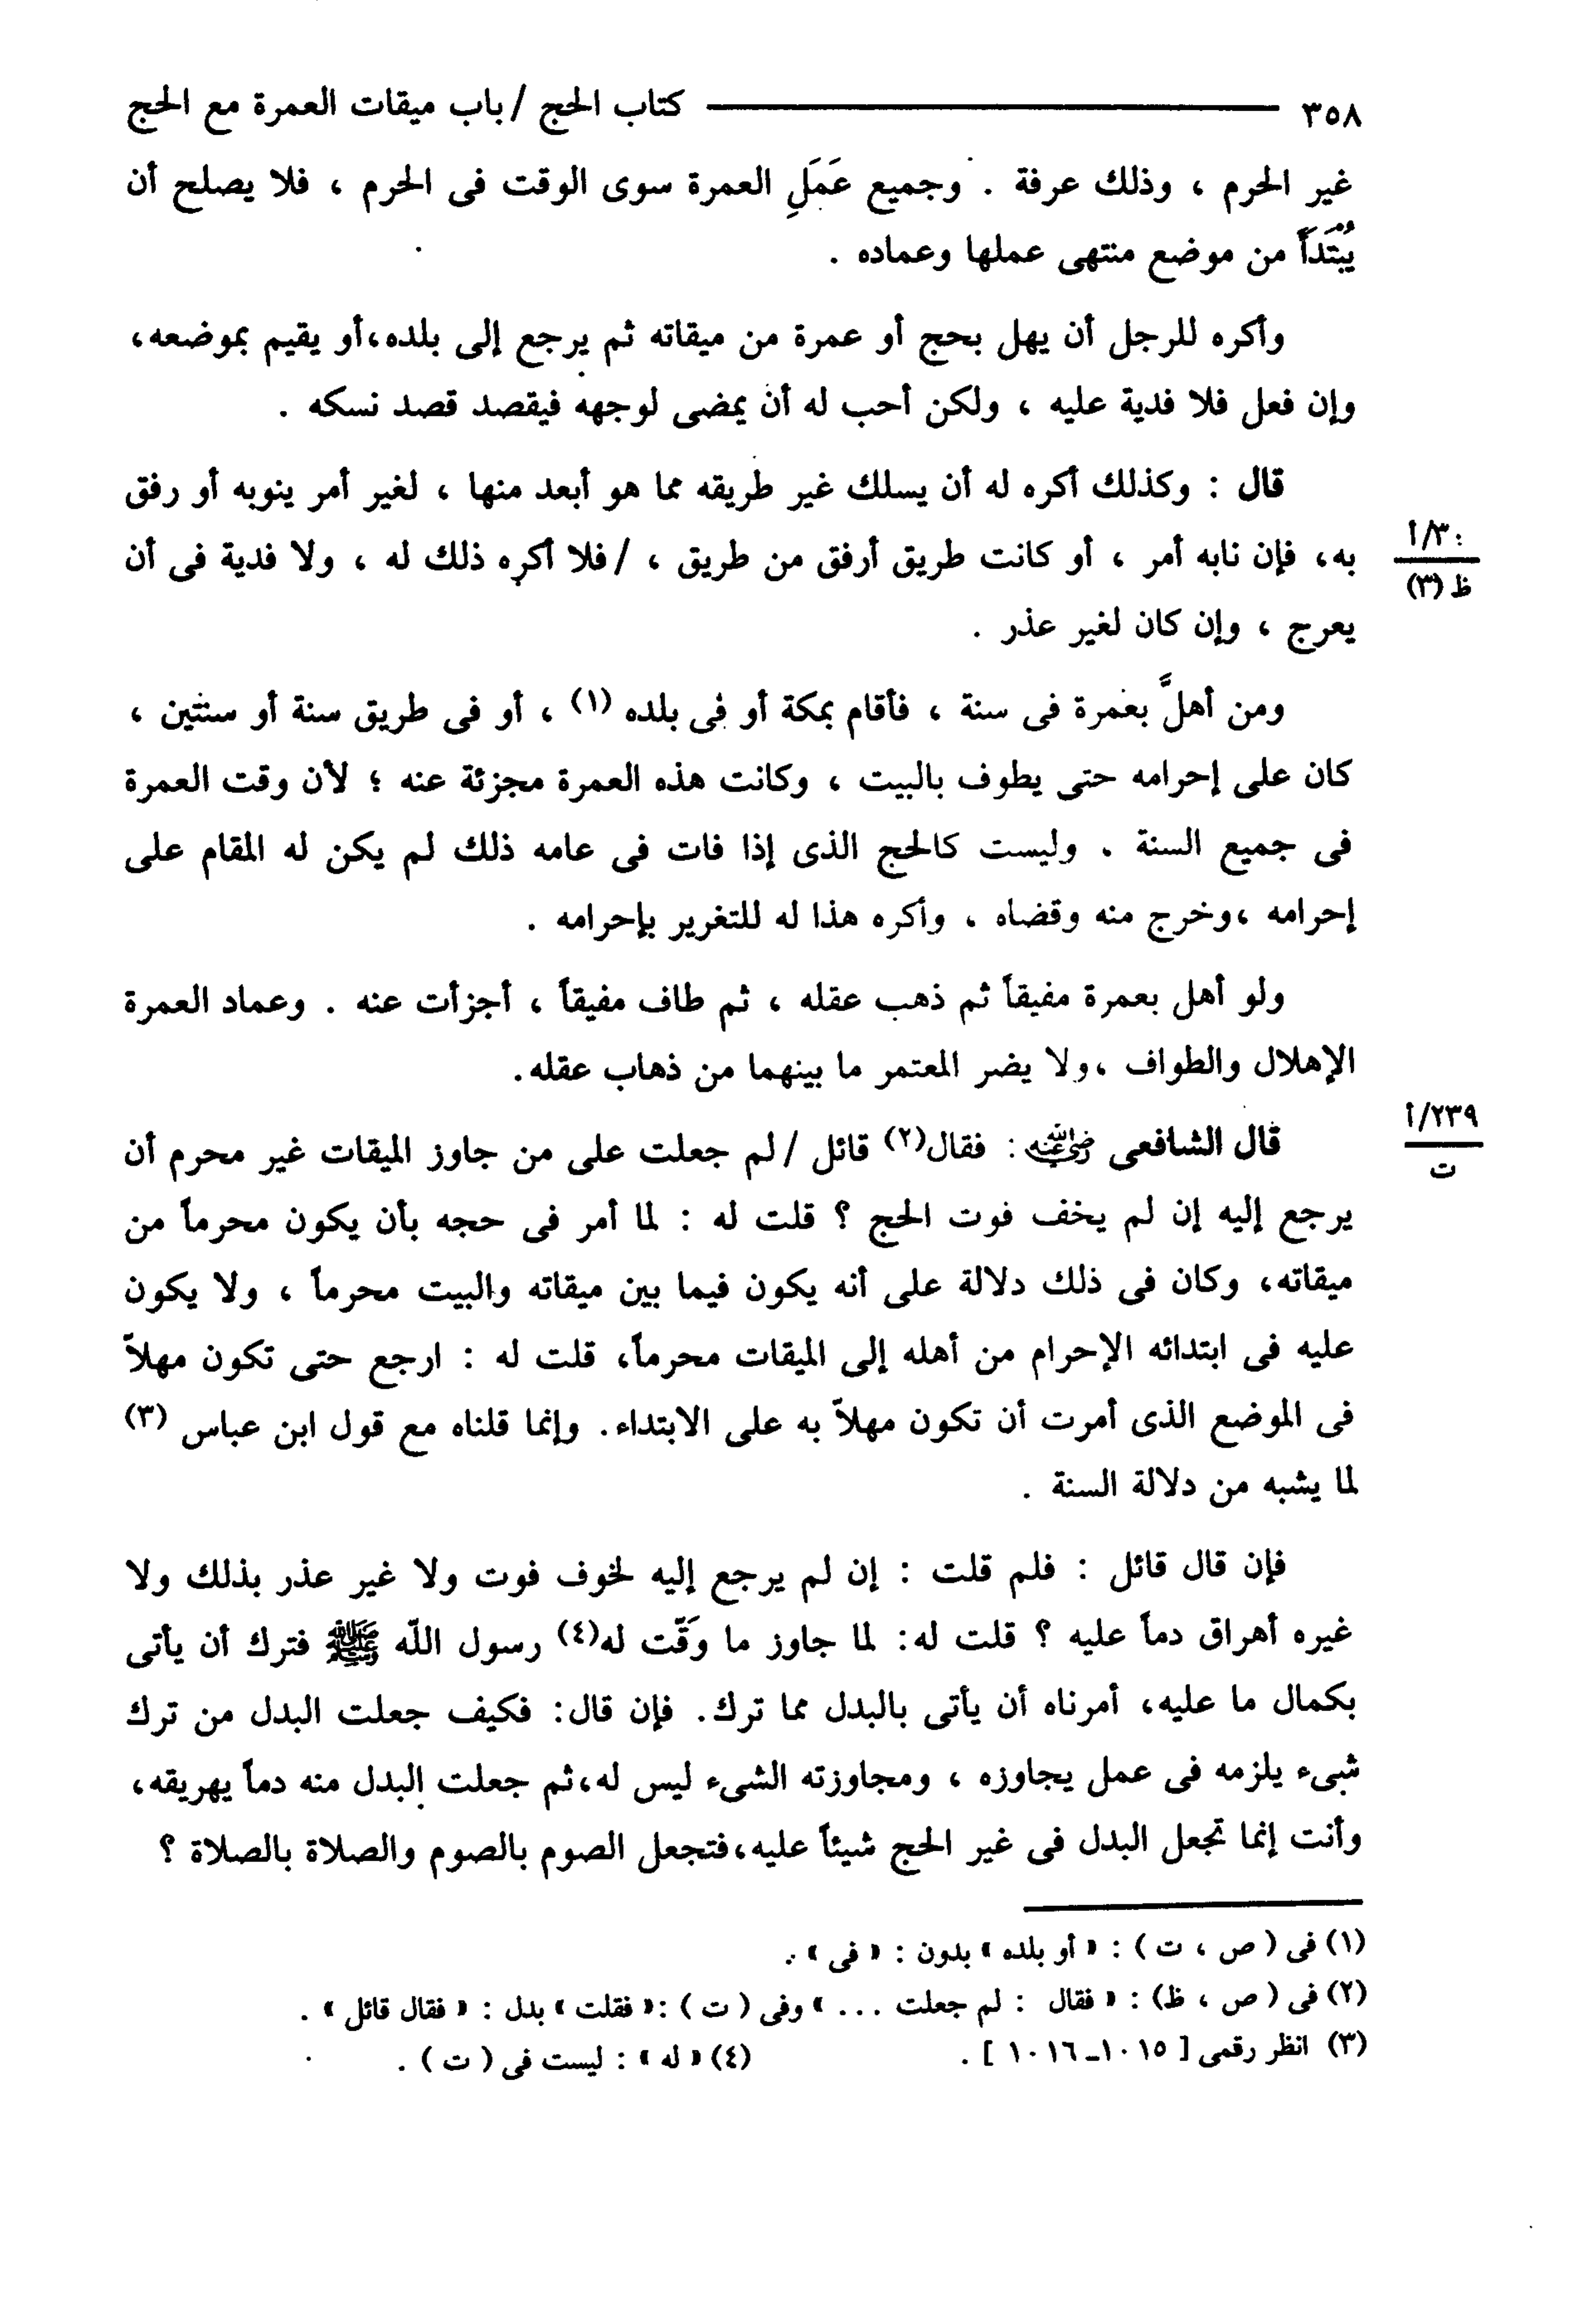 ٣٥٨ كتاب الحج / باب ميقات العمرة مع الحج
غير الحرم ، وذلك عرفة . وجميع عَمَلِ العمرة سوى الوقت فى الحرم ، فلا يصلح أن
يُبْتَدَأ من موضع منتهى عملها وعماده .
وأكره للرجل أن يهل بحج أو عمرة من ميقاته ثم يرجع إلى بلده، أو يقيم بموضعه،
وإن فعل فلا فدية عليه ، ولكن أحب له أن يمضى لوجهه فيقصد قصد نسكه .
قال : وكذلك أكره له أن يسلك غير طريقه مما هو أبعد منها ، لغير أمر ينوبه أو رفق
به، فإن نابه أمر ، أو كانت طريق أرفق من طريق ، / فلا أكره ذلك له ، ولا فدية فى أن
٣٠/أ
ظ (٣)
يعرج ، وإن كان لغير عذر .
ومن أهلَّ بعمرة فى سنة ، فأقام بمكة أو فى بلده (١) ، أو فى طريق سنة أو سنتين ،
كان على إحرامه حتى يطوف بالبيت ، وكانت هذه العمرة مجزئة عنه ؛ لأن وقت العمرة
فى جميع السنة . وليست كالحج الذى إذا فات فى عامه ذلك لم يكن له المقام على
إحرامه ،وخرج منه وقضاه ، وأكره هذا له للتغرير بإحرامه .
ولو أهل بعمرة مفيقاً ثم ذهب عقله ، ثم طاف مفيقاً ، أجزأت عنه . وعماد العمرة
الإهلال والطواف ،ولا يضر المعتمر ما بينهما من ذهاب عقله.
قال الشافعى رضي الله عنه : فقال(٢) قائل / لم جعلت على من جاوز الميقات غير محرم أن
٢٣٩/أ
ت
يرجع إليه إن لم يخف فوت الحج ؟ قلت له : لما أمر فى حجه بأن يكون محرماً من
ميقاته، وكان فى ذلك دلالة على أنه يكون فيما بين ميقاته والبيت محرماً ، ولا يكون
عليه فى ابتدائه الإحرام من أهله إلى الميقات محرماً، قلت له : ارجع حتى تكون مهلاً
فى الموضع الذى أمرت أن تكون مهلاً به على الابتداء. وإنما قلناه مع قول ابن عباس (٣)
لما يشبه من دلالة السنة .
فإن قال قائل : فلم قلت : إن لم يرجع إليه لخوف فوت ولا غير عذر بذلك ولا
غيره أهراق دماً عليه ؟ قلت له: لما جاوز ما وَقَّت له(٤) رسول اللّه ﷺ فترك أن يأتى
بكمال ما عليه، أمرناه أن يأتى بالبدل مما ترك. فإن قال: فكيف جعلت البدل من ترك
شىء يلزمه فى عمل يجاوزه ، ومجاوزته الشىء ليس له،ثم جعلت البدل منه دماً يهريقه،
وأنت إنما تجعل البدل فى غير الحج شيئاً عليه،فتجعل الصوم بالصوم والصلاة بالصلاة ؟
(١) فى ( ص ، ت ) : « أو بلده » بدون : « فى » .
(٢) فى ( ص ، ظ) : « فقال : لم جعلت ... » وفى ( ت ) :« فقلت » بدل : « فقال قائل » .
(٣) انظر رقمى [ ١٠١٥-١٠١٦ ] . (٤) « له » : ليست فى ( ت ) .